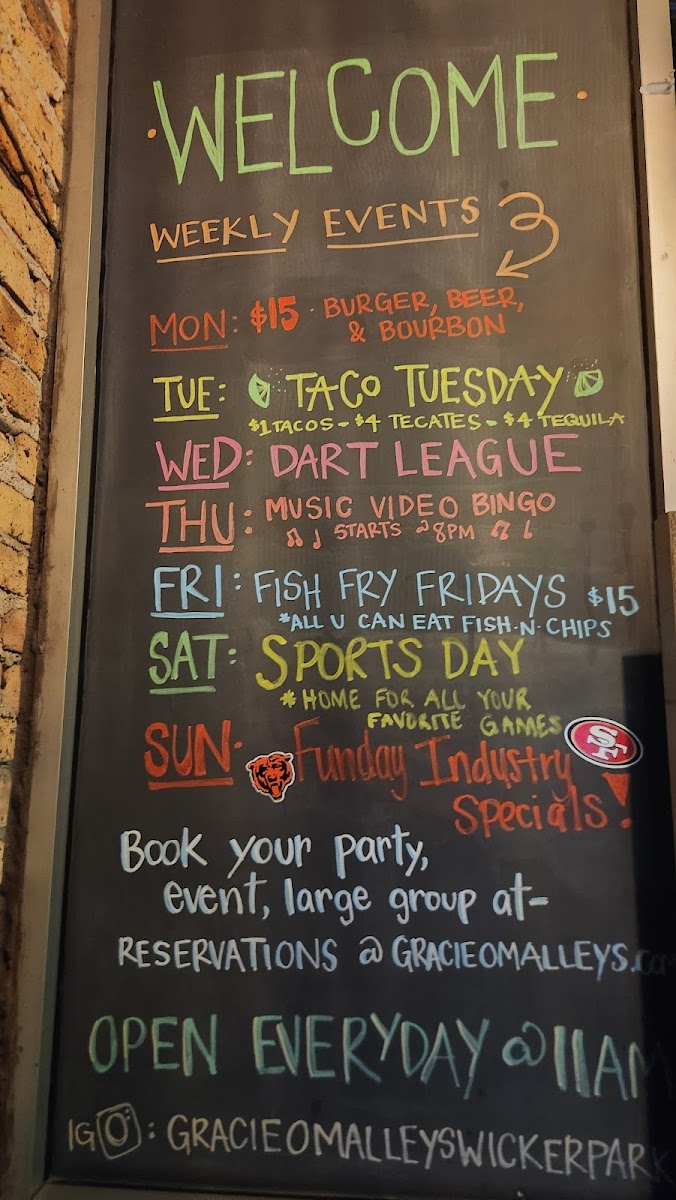 WELCOME
WEEKLY EVENTS
MON: $15 · BURGER, BEER,
& BOURBON
TUE: TACO TUESDAY
$1 TACOS - $4 TECATES - $4 TEQUILA
WED: DART LEAGUE
THU: MUSIC VIDEO BINGO
STARTS @ 8PM
FRI: FISH FRY FRIDAYS $15
*ALL U CAN EAT FISH-N-CHIPS
SAT: SPORTS DAY
*HOME FOR ALL YOUR
FAVORITE GAMES
SUN: Funday Industry
Specials!
SF
Book your party,
event, large group at-
RESERVATIONS @ GRACIEOMALLEYS.com
OPEN EVERYDAY @ 11AM
IG: GRACIEOMALLEYSWICKERPARK